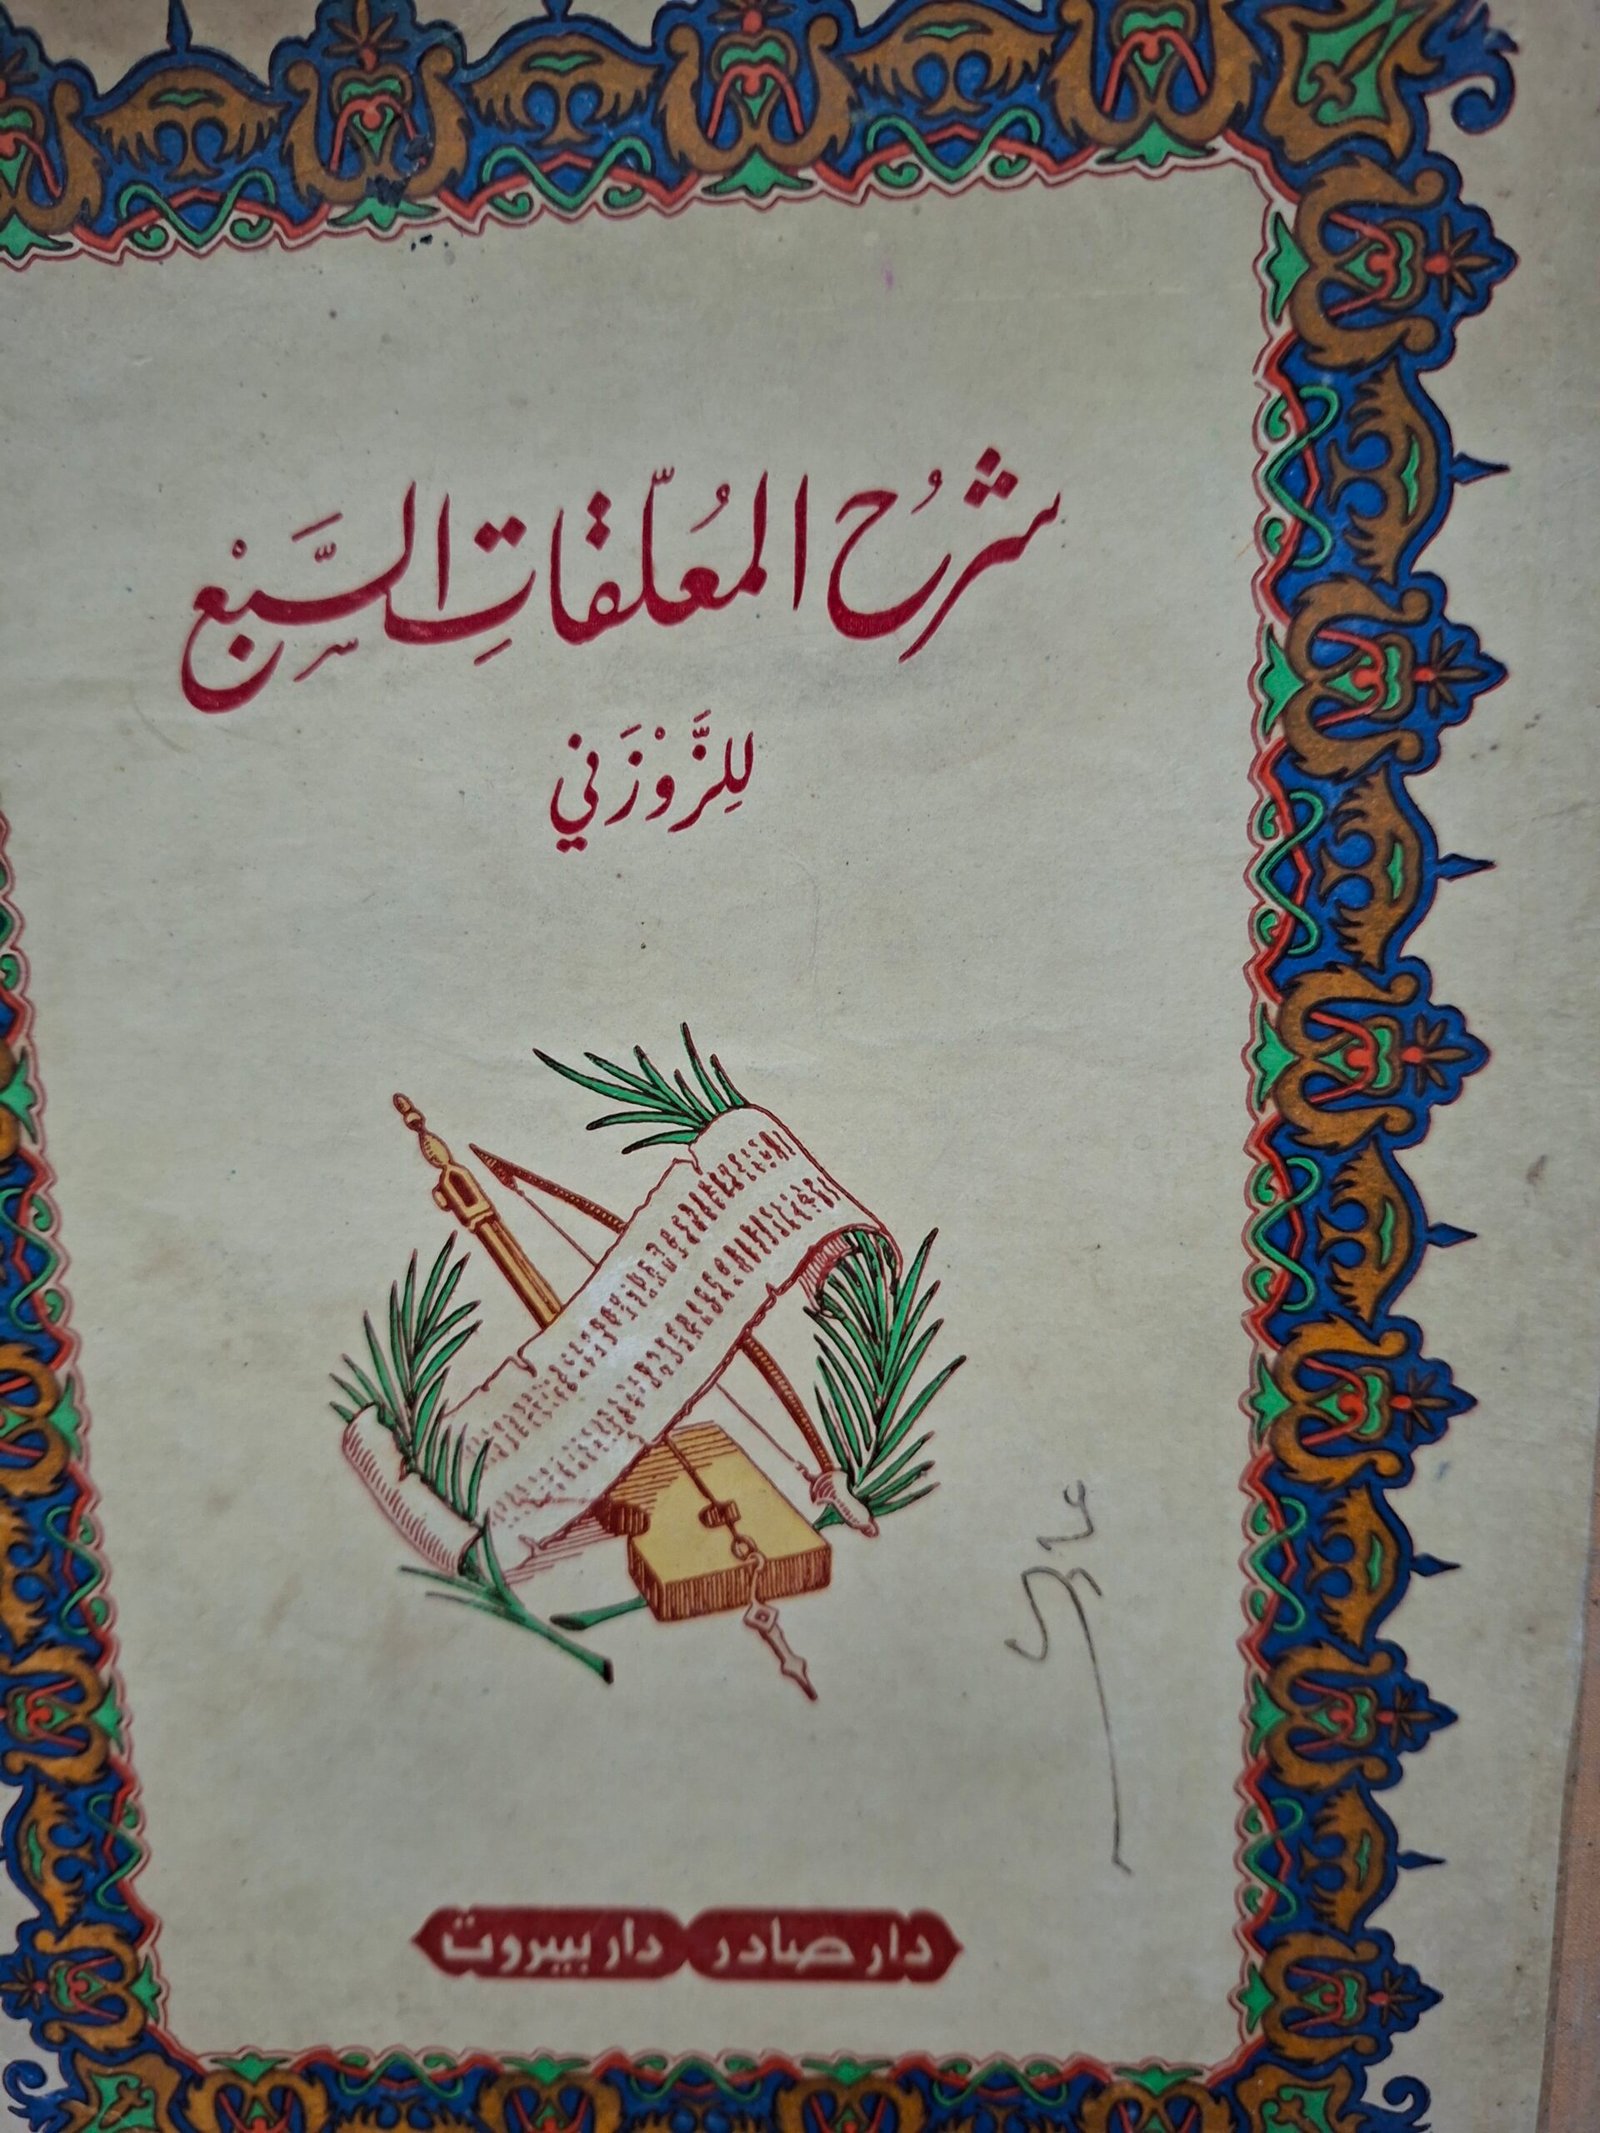 شرحُ المُعلّقاتِ السَّبْع
لِلزَّوْزَني
دار صادر دار بيروت